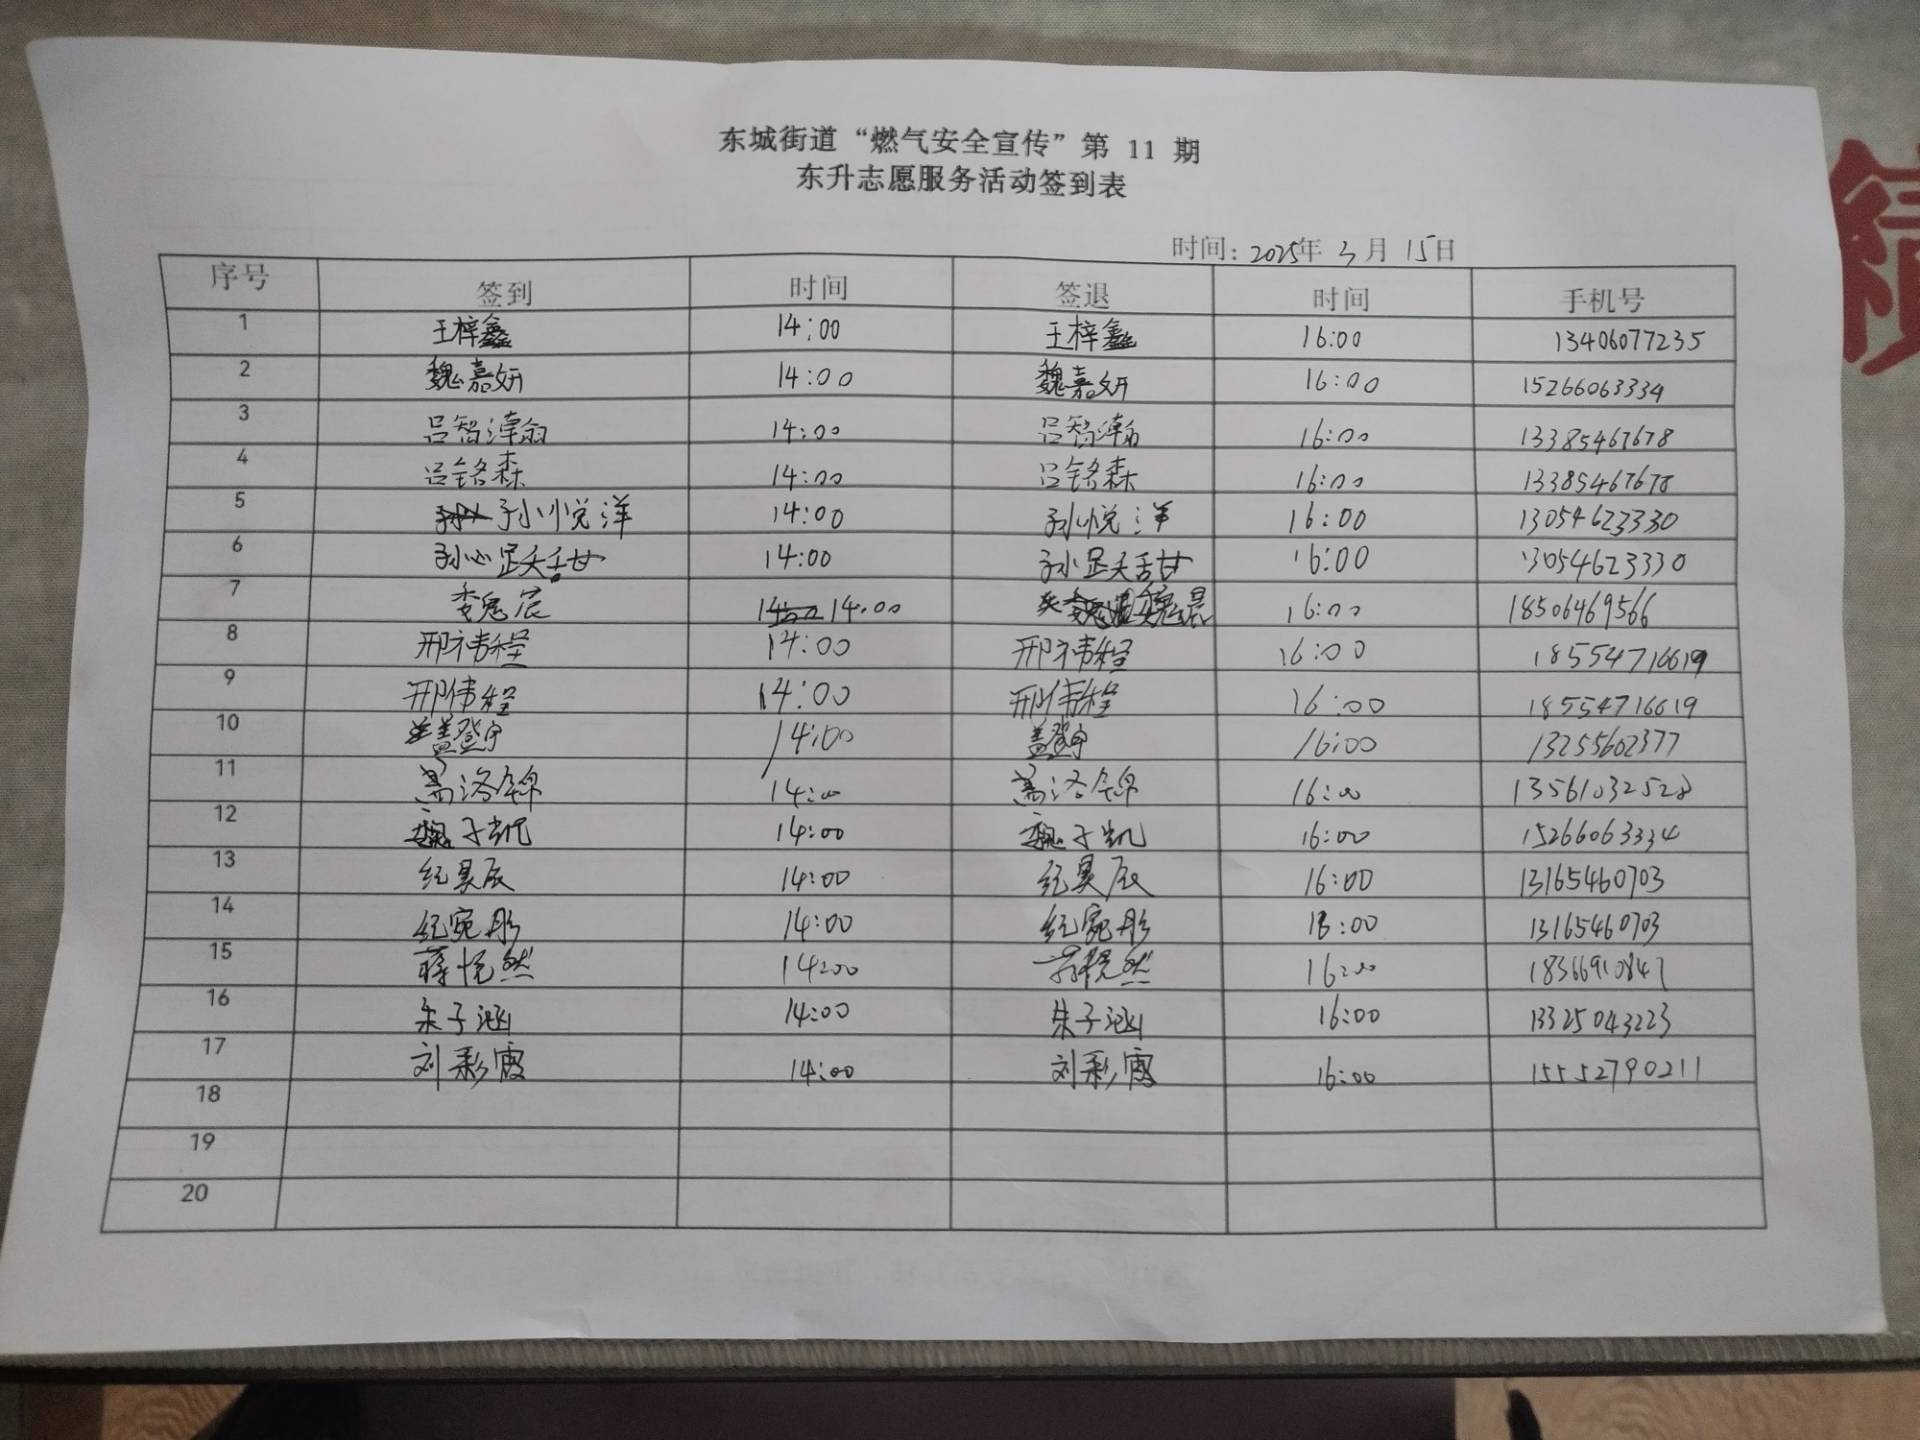 东城街道“燃气安全宣传”第 11 期
东升志愿服务活动签到表
时间: 2025年 3月 15日
序号 签到 时间 签退 时间 手机号
1 王梓鑫 14:00 王梓鑫 16:00 13406077235
2 魏嘉妍 14:00 魏嘉妍 16:00 15266063334
3 吕智 14:00 吕智 16:00 13385467678
4 吕铭森 14:00 吕铭森 16:00 13385467678
5 孙悦洋 14:00 孙悦洋 16:00 13054623330
6 孙 甜 14:00 孙 甜 16:00 13054623330
7 14:00 16:00 18506469566
8 邢祎程 14:00 邢祎程 16:00 18554716619
9 邢伟程 14:00 邢伟程 16:00 18554716619
10 盖登宇 14:00 盖登宇 16:00 13255602377
11 盖洛锦 14:00 盖洛锦 16:00 13561032528
12 魏子凯 14:00 魏子凯 16:00 15266063334
13 纪昊辰 14:00 纪昊辰 16:00 13165460703
14 纪宛彤 14:00 纪宛彤 16:00 13165460703
15 蒋悦然 14:00 然 16:00 18366910847
16 朱子涵 14:00 朱子涵 16:00 13325043223
17 刘彩霞 14:00 刘彩霞 16:00 15552790211
18
19
20
绩